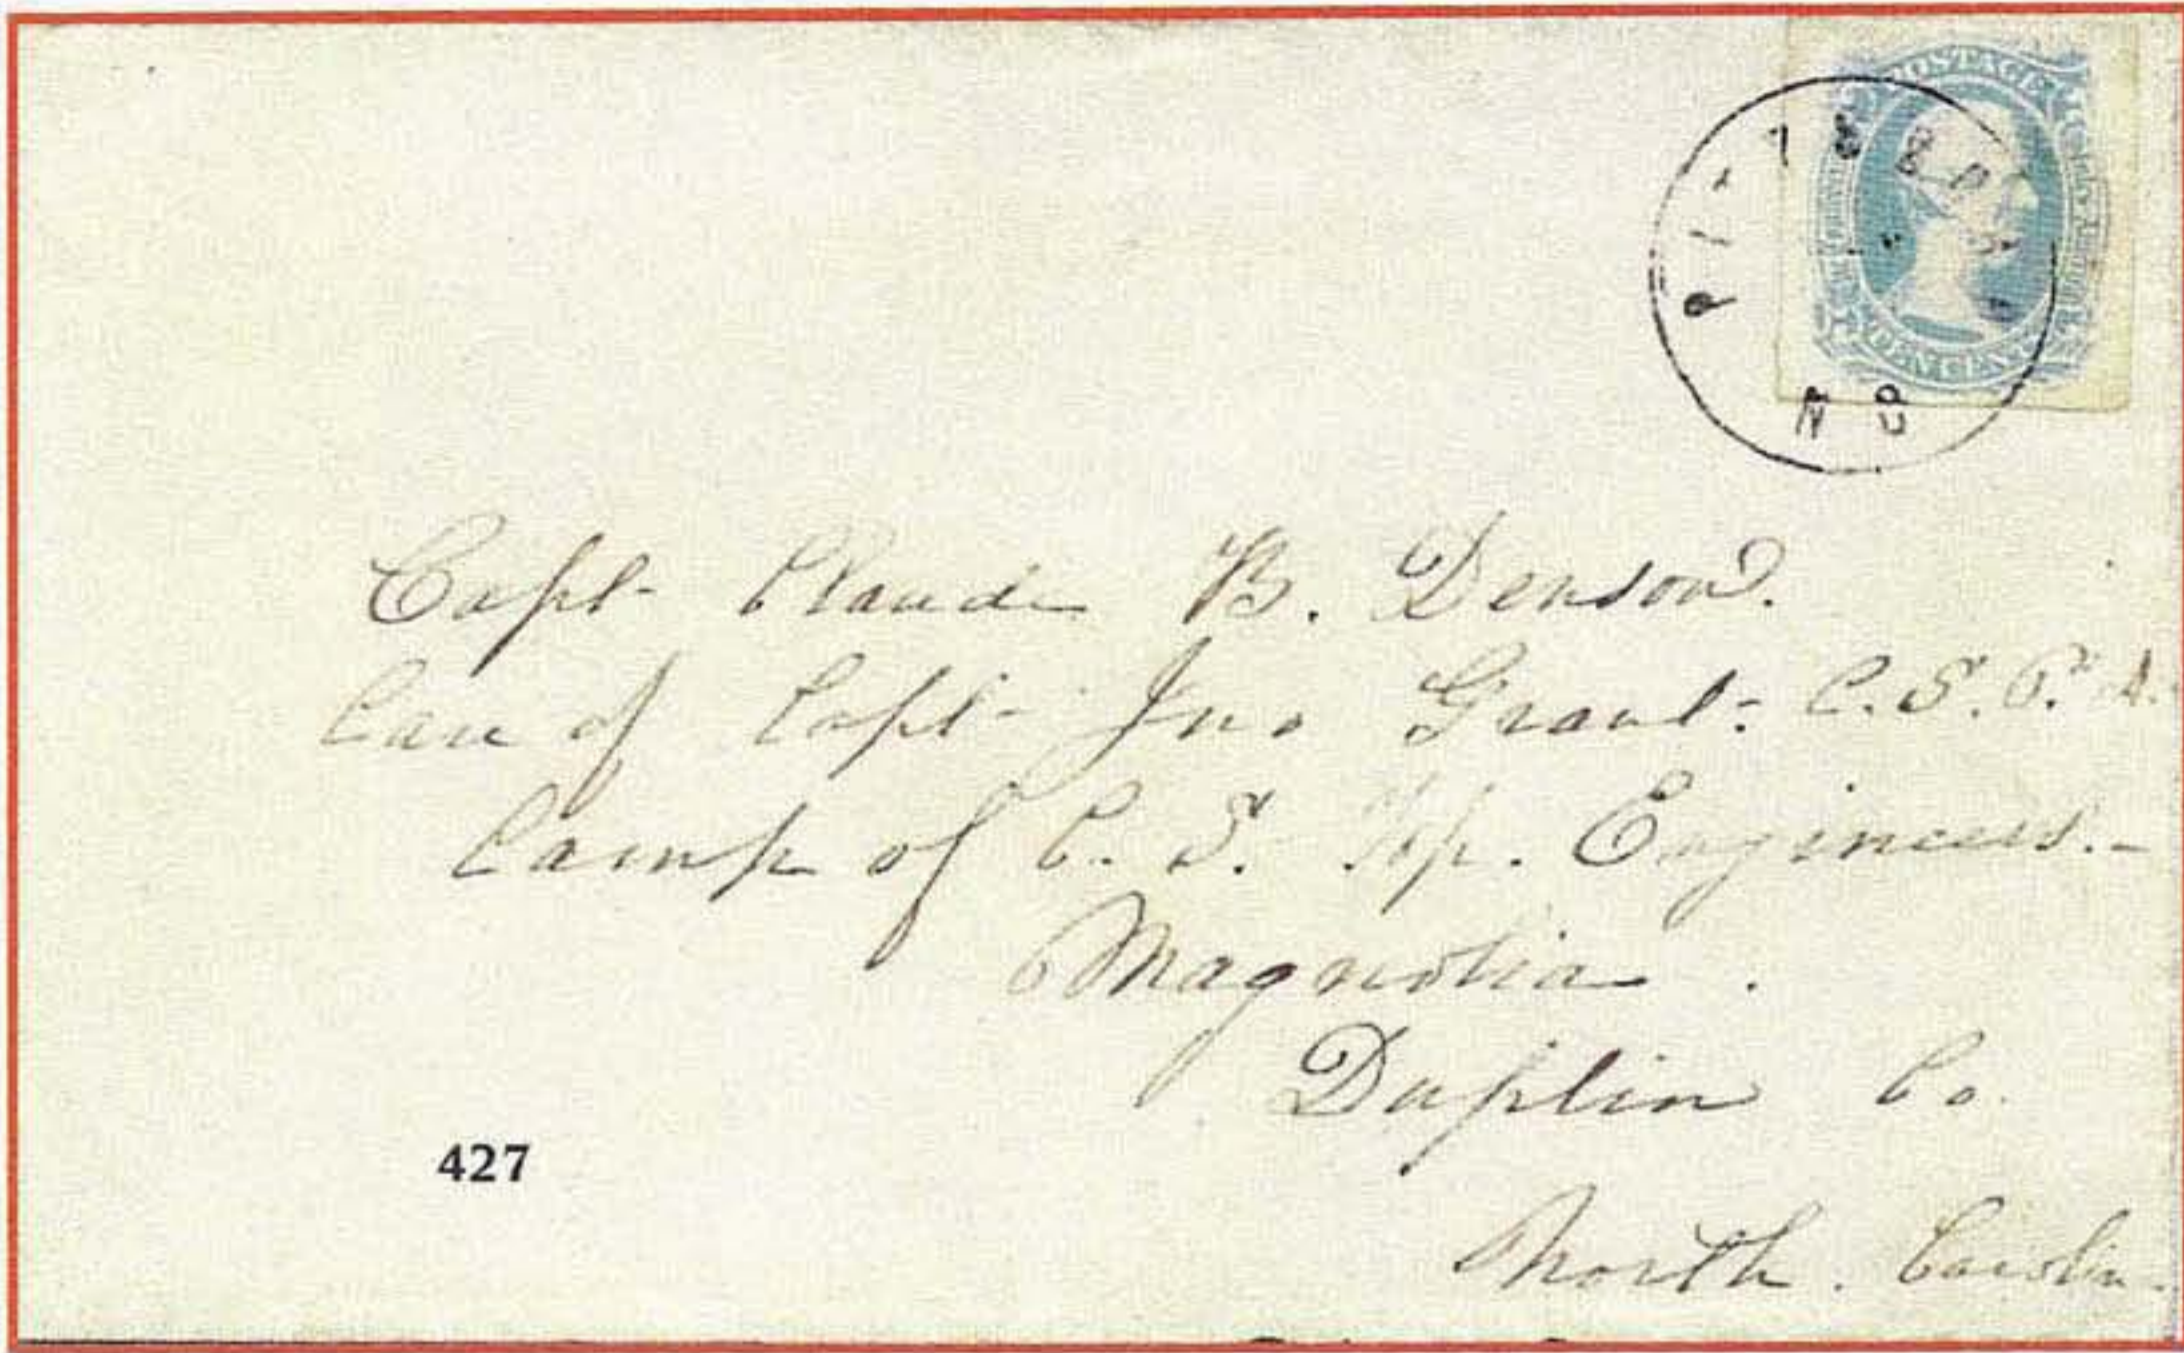 POSTAGE
TEN CENTS
PITTSBORO
N C
Capt. Claude B. Denson.
Care of Capt. Jno Grant. C. S. P. A.
Camp of C. S. Top. Engineers.-
Magnolia.
Duplin Co.
North. Carolin
427